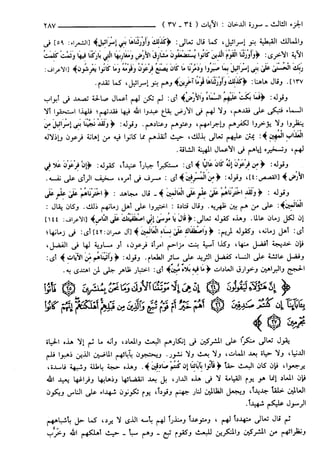 الجزء الثالث - سورة الدخان : الآيات (٣٤ - ٣٧) ٢٨٧
والممالك القبطية بنو إسرائيل، كما قال تعالى: ﴿كذلك وأورثناها بني إسرائيل﴾ [الشعراء: ٥٩] فى
الآية الأخرى: ﴿وأورثنا القوم الذين كانوا يستضعفون مشارق الأرض ومغاربها التي باركنا فيها وتمت كلمت
ربك الحسنى على بني إسرائيل بما صبروا ودمرنا ما كان يصنع فرعون وقومه وما كانوا يعرشون﴾ [الأعراف:
١٣٧]. وقال هاهنا: ﴿كذلك وأورثناها قوما آخرين﴾ وهم بنو إسرائيل، كما تقدم.
وقوله: ﴿فما بكت عليهم السماء والأرض﴾ أى: لم تكن لهم أعمال صالحة تصعد فى أبواب
السماء فتبكى على فقدهم، ولا لهم فى الأرض بقاع عبدوا الله فيها فقدتهم؛ فلهذا استحقوا ألا
ينظروا ولا يؤخروا لكفرهم وإجرامهم، وعتوهم وعنادهم. وقوله: ﴿ولقد نجينا بني إسرائيل من
العذاب المهين﴾: يمتن عليهم تعالى بذلك، حيث أنقذهم مما كانوا فيه من إهانة فرعون وإذلاله
لهم، وتسخيره إياهم فى الأعمال المهينة الشاقة.
وقوله: ﴿من فرعون إنه كان عاليا﴾ أى: مستكبراً جباراً عنيداً، كقوله: ﴿إن فرعون علا في
الأرض﴾ [القصص: ٤]، وقوله: ﴿من المسرفين﴾ أى: مسرف فى أمره، سخيف الرأى على نفسه.
وقوله: ﴿ولقد اخترناهم على علم على العالمين﴾. قال مجاهد: ﴿اخترناهم على علم على
العالمين﴾: على من هم بين ظهريه. وقال قتادة: اختيروا على أهل زمانهم ذلك. وكان يقال:
إن لكل زمان عالما. وهذه كقوله تعالى: ﴿قال يا موسى إني اصطفيتك على الناس﴾ [الأعراف: ١٤٤]
أى: أهل زمانه، وكقوله لمريم: ﴿واصطفاك على نساء العالمين﴾ [آل عمران: ٤٢] أى: فى زمانها؛
فإن خديجة أفضل منها، وكذا آسية بنت مزاحم امرأة فرعون، أو مساوية لها فى الفضل،
وفضل عائشة على النساء كفضل الثريد على سائر الطعام. وقوله: ﴿وآتيناهم من الآيات﴾ أى:
الحجج والبراهين وخوارق العادات ﴿ما فيه بلاء مبين﴾ أى: اختبار ظاهر جلى لمن اهتدى به.
﴿إن هؤلاء ليقولون إن هي إلا موتتنا الأولى وما نحن بمنشرين
فأتوا بآبائنا إن كنتم صادقين أهم خير أم قوم تبع والذين من قبلهم أهلكناهم إنهم كانوا
مجرمين﴾
يقول تعالى منكراً على المشركين فى إنكارهم البعث والمعاد، وأنه ما ثم إلا هذه الحياة
الدنيا، ولا حياة بعد الممات، ولا بعث ولا نشور. ويحتجون بآبائهم الماضين الذين ذهبوا فلم
يرجعوا، فإن كان البعث حقاً ﴿فأتوا بآبائنا إن كنتم صادقين﴾. وهذه حجة باطلة وشبهة فاسدة،
فإن المعاد إنما هو يوم القيامة لا فى هذه الدار، بل بعد انقضائها وذهابها وفراغها يعيد الله
العالمين خلقاً جديداً، ويجعل الظالمين لنار جهنم وقوداً، يوم تكونون شهداء على الناس ويكون
الرسول عليكم شهيداً.
ثم قال تعالى متهدداً لهم، ومتوعداً ومنذراً لهم بأسه الذى لا يرد، كما حل بأشباههم
ونظرائهم من المشركين والمنكرين للبعث وكقوم تبع - وهم سبأ - حيث أهلكهم الله وخرب